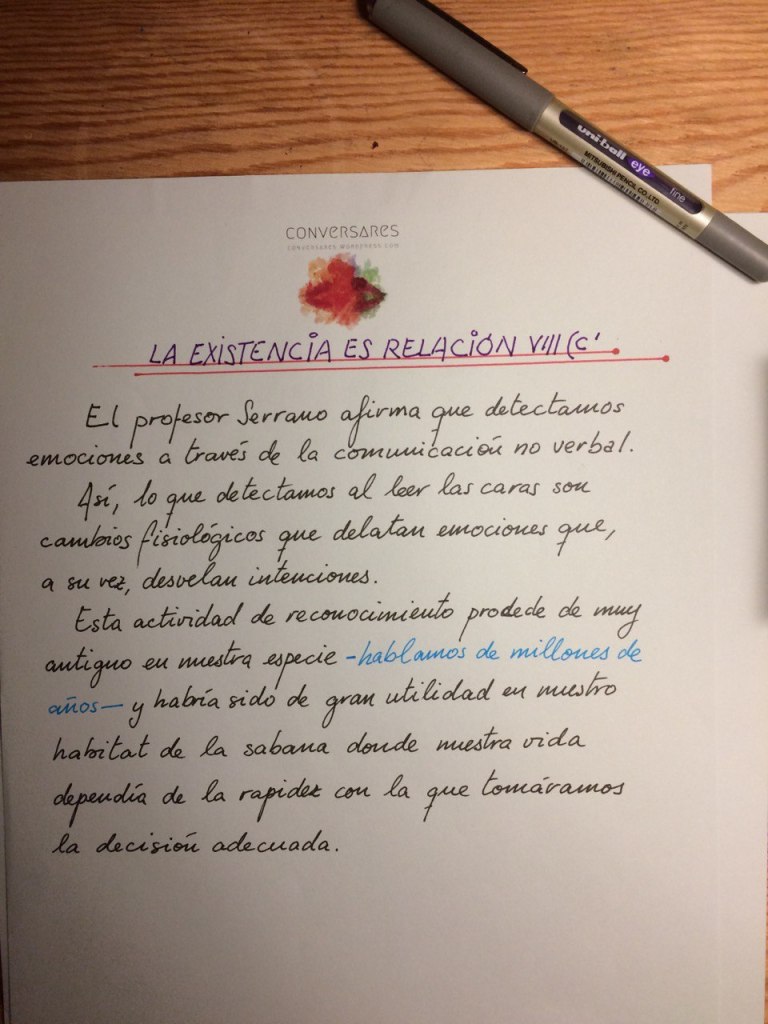 uni-ball eye fine
MITSUBISHI PENCIL CO.,LTD
CONVERSARES
CONVERSARES.WORDPRESS.COM
LA EXISTENCIA ES RELACIÓN VIII (C'
El profesor Serrano afirma que detectamos
emociones a través de la comunicación no verbal.
Así, lo que detectamos al leer las caras son
cambios fisiológicos que delatan emociones que,
a su vez, desvelan intenciones.
Esta actividad de reconocimiento prodede de muy
antiguo en nuestra especie -hablamos de millones de
años— y habría sido de gran utilidad en nuestro
habitat de la sabana donde nuestra vida
dependía de la rapidez con la que tomáramos
la decisión adecuada.